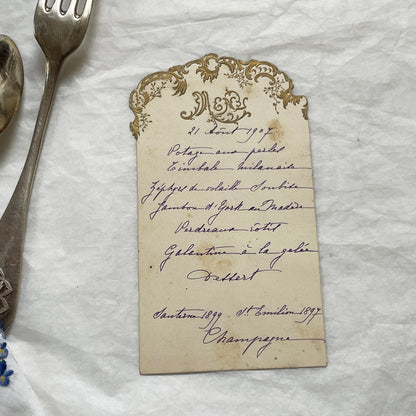 M & G
21 Août 1907
Potage aux perles
Timbale milanaise
Zéphyrs de volaille Soubise
Jambon d'York au Madère
Perdreaux rôtis
Galantine à la gelée
Dessert
Sauterne 1899. St Emilion 1897
Champagne